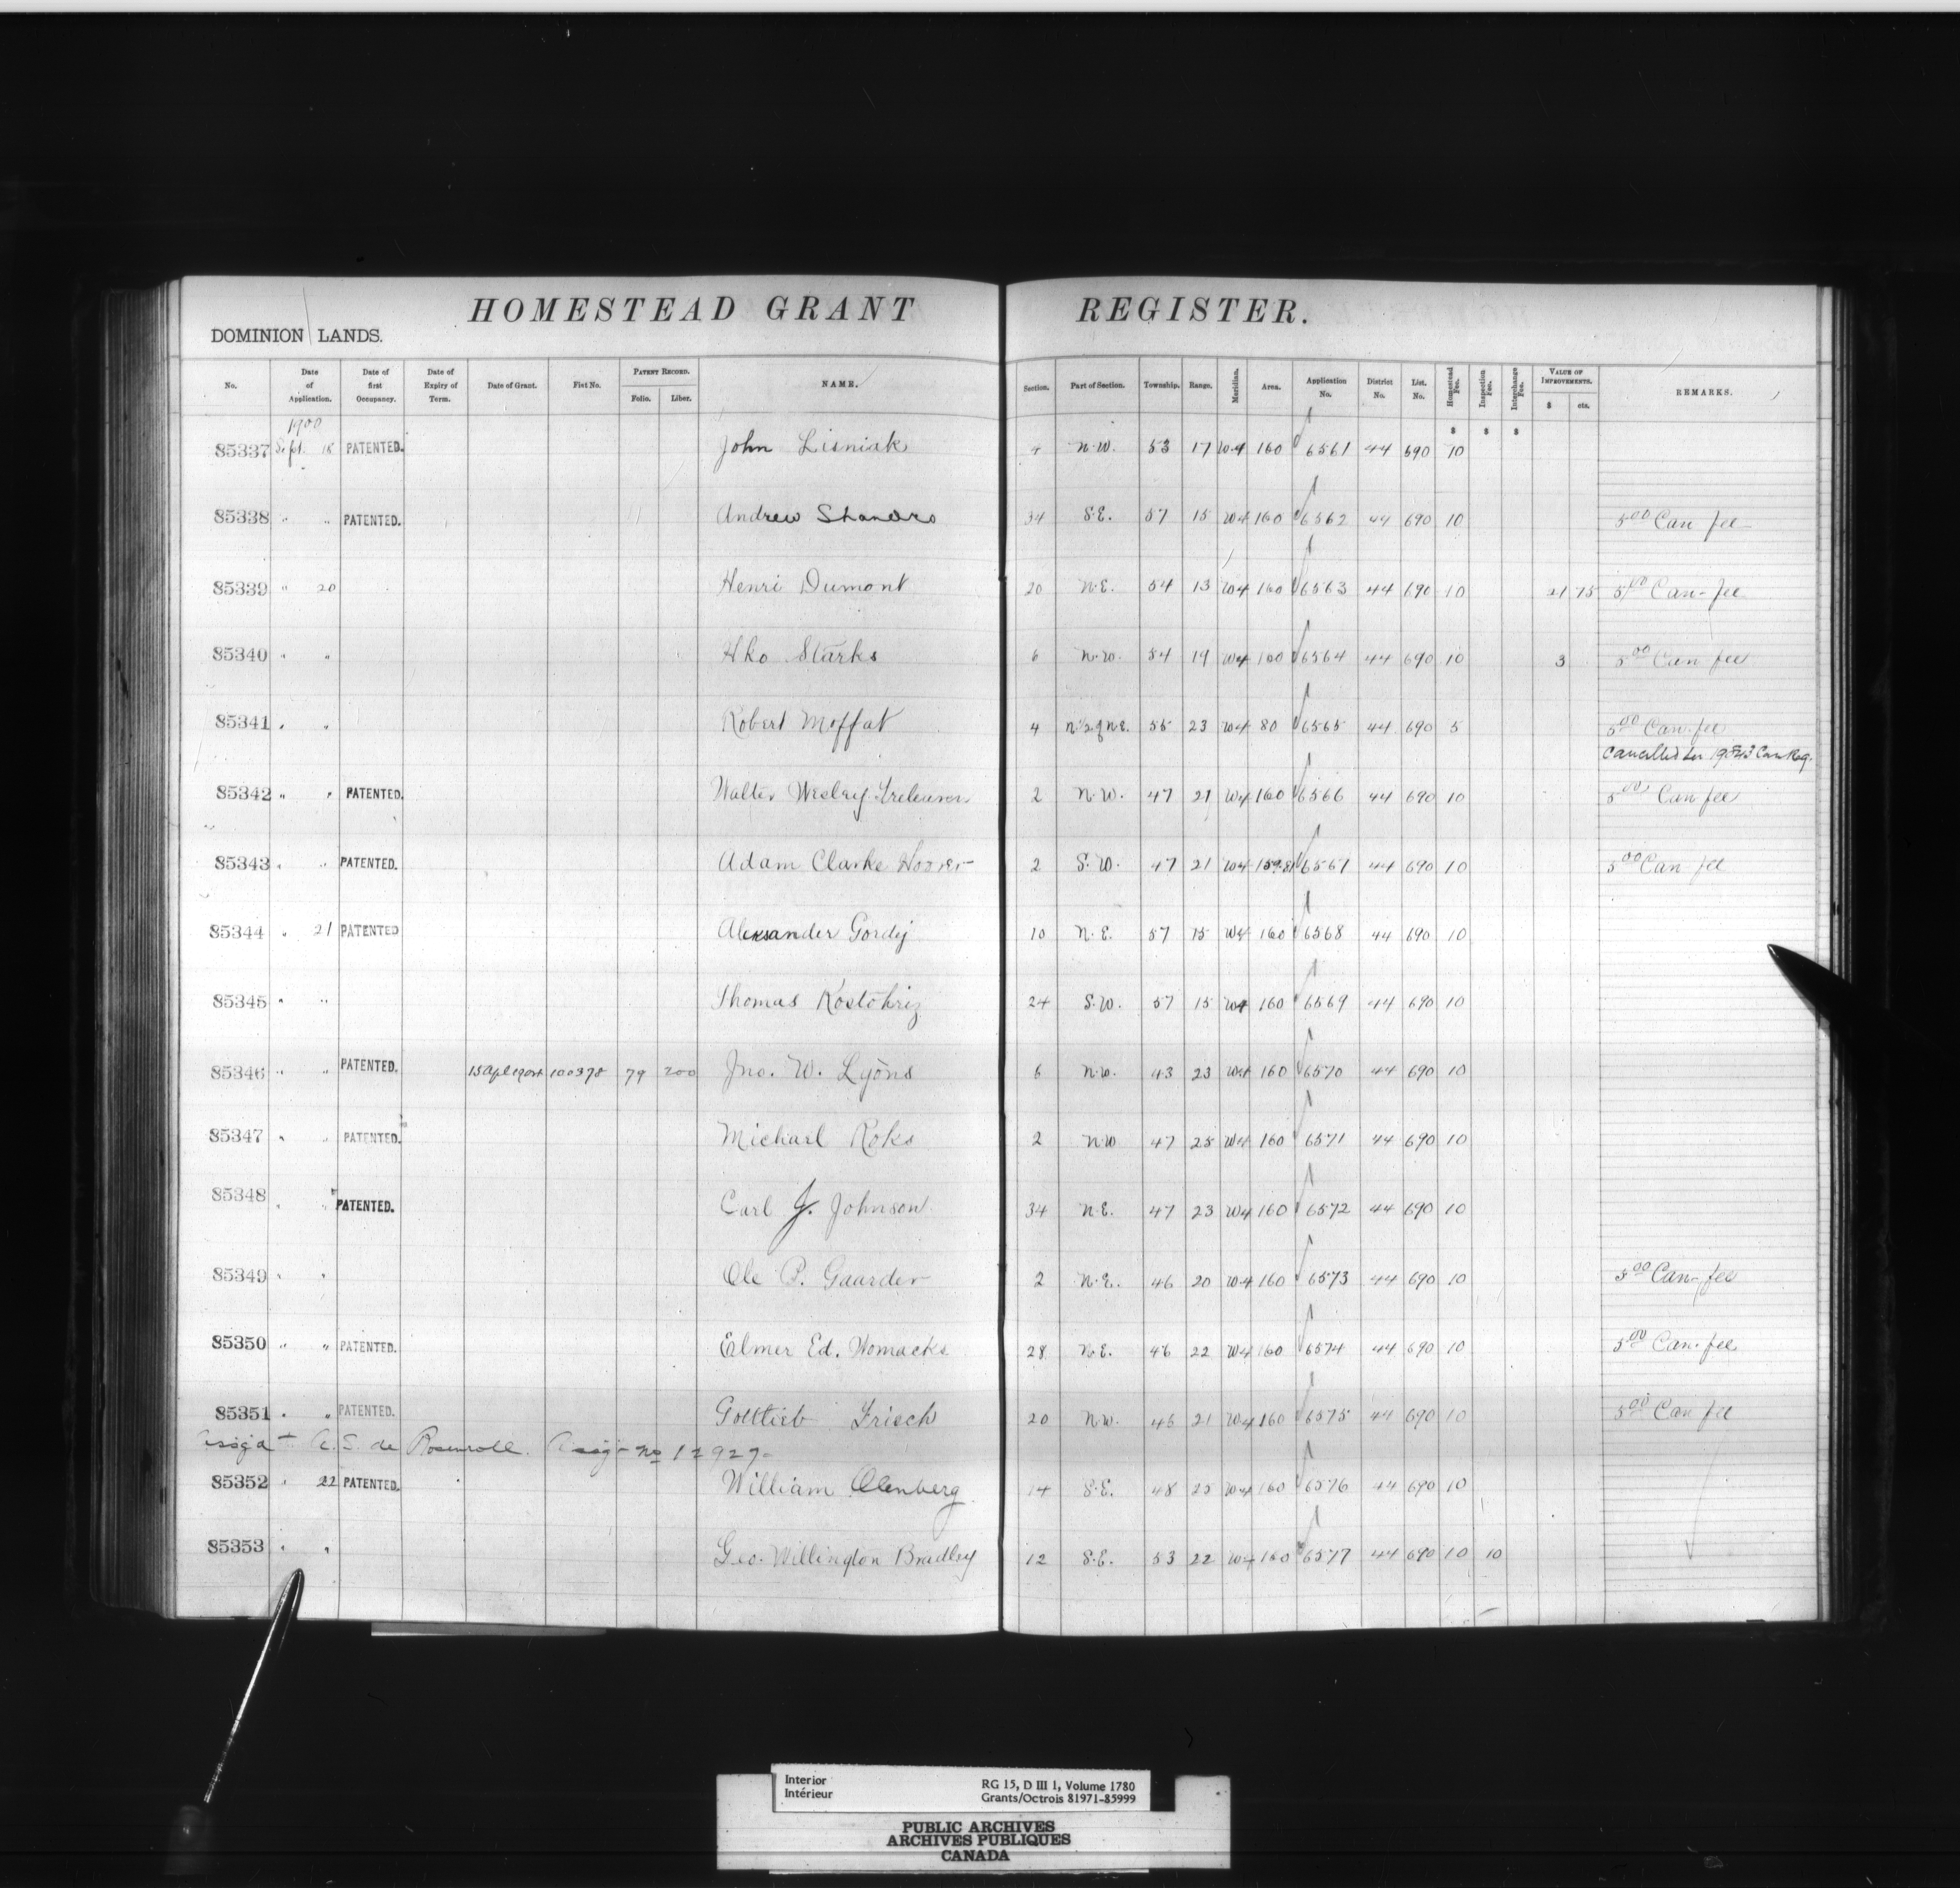 HOMESTEAD GRANT REGISTER.
DOMINION LANDS.
No. Date of Application. Date of first Occupancy. Date of Expiry of Term. Date of Grant. Fiat No. PATENT RECORD. Folio. Liber. NAME. Section. Part of Section. Township. Range. Meridian. Area. Application No. District No. List. No. Homestead Fee. Inspection Fee. Interchange Fee. VALUE OF IMPROVEMENTS. $ cts. REMARKS.
$ $ $
1900
85337 Sept. 18 PATENTED. John Lisniak 4 N.W. 53 17 W4 160 6561 44 690 10
85338 " " PATENTED. Andrew Shandro 34 S.E. 57 15 W4 160 6562 44 690 10 5.00 Can fee
85339 " 20 Henri Dumont 20 N.E. 54 13 W4 160 6563 44 690 10 21 75 5.00 Can-fee
85340 " " Hko Starks 6 N.W. 54 19 W4 160 6564 44 690 10 3 5.00 Can fee
85341 " " Robert Moffat 4 N.1/2 of N.E. 55 23 W4 80 6565 44 690 5 5.00 Can.fee
Cancelled Can Reg.
85342 " " PATENTED. Walter Wesley Treleaven 2 N.W. 47 21 W4 160 6566 44 690 10 5.00 Can fee
85343 " " PATENTED. Adam Clarke Hoover 2 S.W. 47 21 W4 159.81 6567 44 690 10 5.00 Can fee
85344 " 21 PATENTED Alexsander Gordij 10 N.E. 57 15 W4 160 6568 44 690 10
85345 " " Thomas Kostohriz 24 S.W. 57 15 W4 160 6569 44 690 10
85346 " " PATENTED. 15 Apl 1904 100378 79 200 Jno. W. Lyons 6 N.W. 43 23 W4 160 6570 44 690 10
85347 " " PATENTED. Michael Roks 2 N.W 47 25 W4 160 6571 44 690 10
85348 " " PATENTED. Carl J. Johnson 34 N.E. 47 23 W4 160 6572 44 690 10
85349 " " Ole P. Gaarder 2 N.E. 46 20 W4 160 6573 44 690 10 5.00 Can-fee
85350 " " PATENTED. Elmer Ed. Womacks 28 N.E. 46 22 W4 160 6574 44 690 10 5.00 Can.fee
85351 " " PATENTED. Gottlieb Friech 20 N.W. 46 21 W4 160 6575 44 690 10 5.00 Can fee
Assgd to A.S. de Rosenroll. Assgt No 12927
85352 " 22 PATENTED. William Olenberg 14 S.E. 48 25 W4 160 6576 44 690 10
85353 " " Geo. Willington Bradley 12 S.E. 53 22 W4 160 6577 44 690 10 10
Interior
Intérieur
RG 15, D III 1, Volume 1780
Grants/Octrois 81971-85999
PUBLIC ARCHIVES
ARCHIVES PUBLIQUES
CANADA